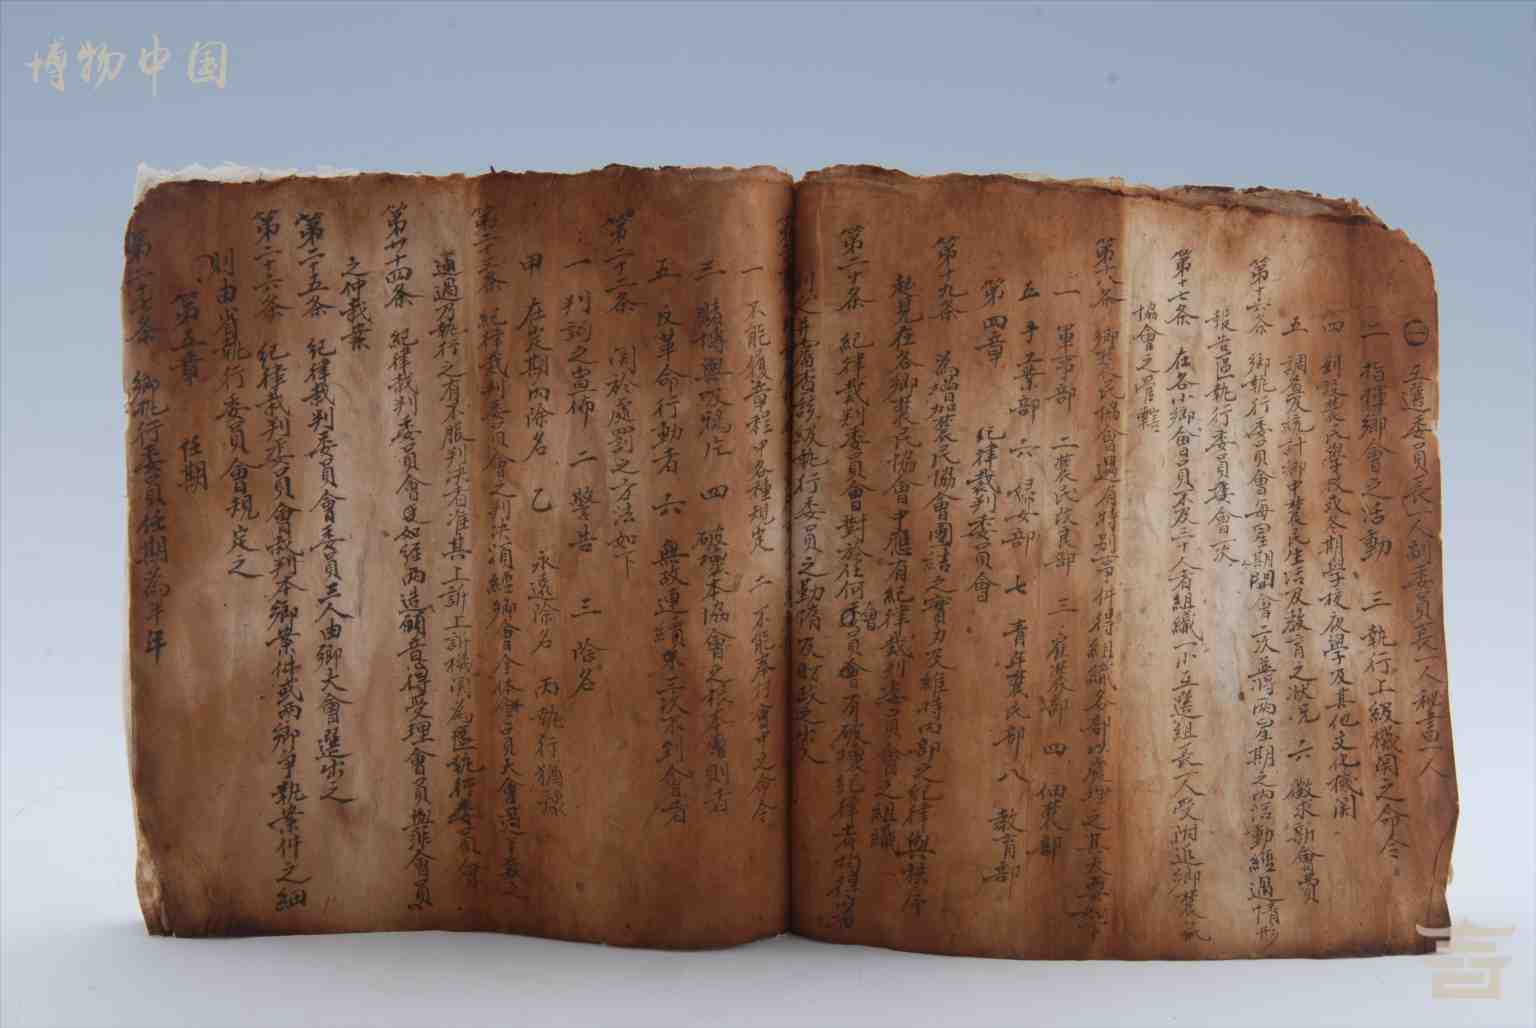 博物中国
㊀ 互選委員長一人副委員長一人秘書一人
二 指揮鄉會之活動 三 執行上級機関之命令
四 創設農民學校或冬期學校夜學及其他文化機関
五 調查及統計鄉中農民生活及教育之狀況 六 徵求新會費
第十六条 鄉執行委員會每星期開會一次並將两星期之內活動經過情形
報告區執行委員會一次
第十七条 在各小鄉會員不及二十人者組織一小互選組長一人受附近鄉農民
協會之管轄
第十八条 鄉農民協會遇有特别事件得組織各部以處理之其大要如
一 軍事部 二 農民改良部 三 雇農部 四 佃農部
五 手工業部 六 婦女部 七 青年農民部 八 教育部
第四章 紀律裁判委員會
第十九条 為增加農民協會團結之實力及維持內部之紀律與秩序
起見在各鄉農民協會中應有紀律裁判委員會之組織
第二十条 紀律裁判委員會對於任何委員會會有破壞紀律者均得審
判之并審查該級執行委員之勤惰及財政之出入
一 不能履章程中各種規定 二 不能奉行會中之命令
三 賭博與吸鴉片 四 破壞本協會之根本會則者
五 反革命行動者 六 無故連續三次不到會者
第二十二条 関於處罰之方法如下
一 判詞之宣佈 二 警告 三 除名
甲 在定期內除名 乙 永遠除名 丙 執行猶豫
第二十三条 紀律裁判委員會之判決須經鄉會全体會員大會過半数之
通過方執行之有不服判决者准其上訴上訴機関為區執行委員會
第廿十四条 紀律裁判委員會又如经两造願意得受理會員與非會員
之仲裁案
第二十五条 紀律裁判委員會委員三人由鄉大會選出之
第二十六条 紀律裁判委員會裁判本鄉案件或两鄉爭執案件之細
則由省執行委員會規定之
第五章 任期
第二十七条 鄉執行委員任期為半年